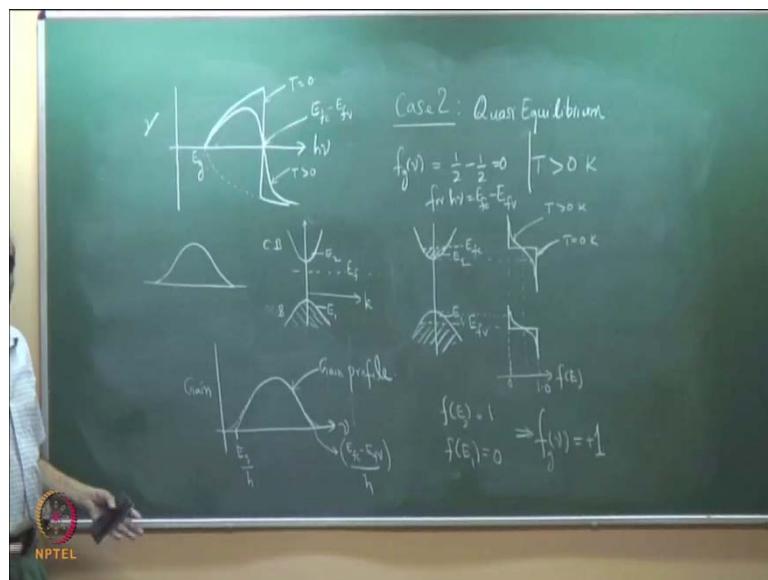 T=0
E_fc - E_fv
γ
E_g
hν
T>0
Case 2: Quasi Equilibrium
f_g(ν) = 1/2 - 1/2 = 0
T > 0 K
for hν = E_fc - E_fv
C.B
E_2
E_f
k
E_1
E_fc
E_2
E_1
E_fv
T>0 K
T=0 K
0
1.0
f(E)
Gain
Gain profile
ν
E_g/h
(E_fc - E_fv)/h
f(E_2) = 1
f(E_1) = 0
⇒ f_g(ν) = +1
NPTEL